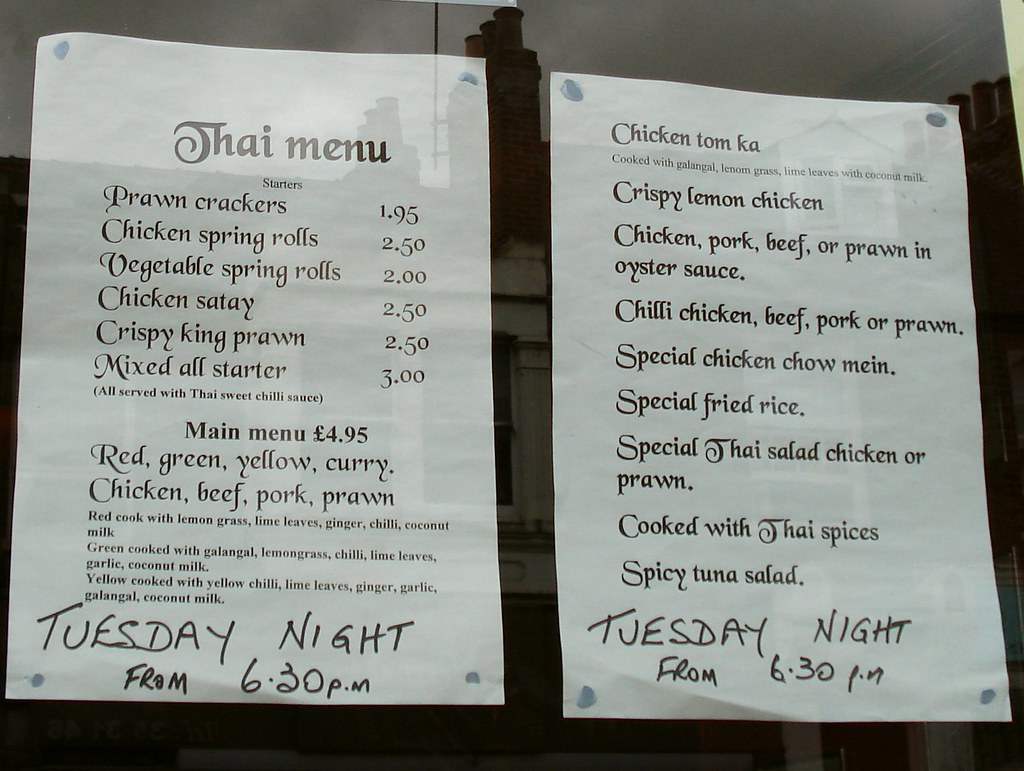 Thai menu
Starters
Prawn crackers 1.95
Chicken spring rolls 2.50
Vegetable spring rolls 2.00
Chicken satay 2.50
Crispy king prawn 2.50
Mixed all starter 3.00
(All served with Thai sweet chilli sauce)
Main menu £4.95
Red, green, yellow, curry.
Chicken, beef, pork, prawn
Red cook with lemon grass, lime leaves, ginger, chilli, coconut
milk
Green cooked with galangal, lemongrass, chilli, lime leaves,
garlic, coconut milk.
Yellow cooked with yellow chilli, lime leaves, ginger, garlic,
galangal, coconut milk.
TUESDAY NIGHT
FROM 6.30p.m
Chicken tom ka
Cooked with galangal, lenom grass, lime leaves with coconut milk.
Crispy lemon chicken
Chicken, pork, beef, or prawn in
oyster sauce.
Chilli chicken, beef, pork or prawn.
Special chicken chow mein.
Special fried rice.
Special Thai salad chicken or
prawn.
Cooked with Thai spices
Spicy tuna salad.
TUESDAY NIGHT
FROM 6.30 p.m